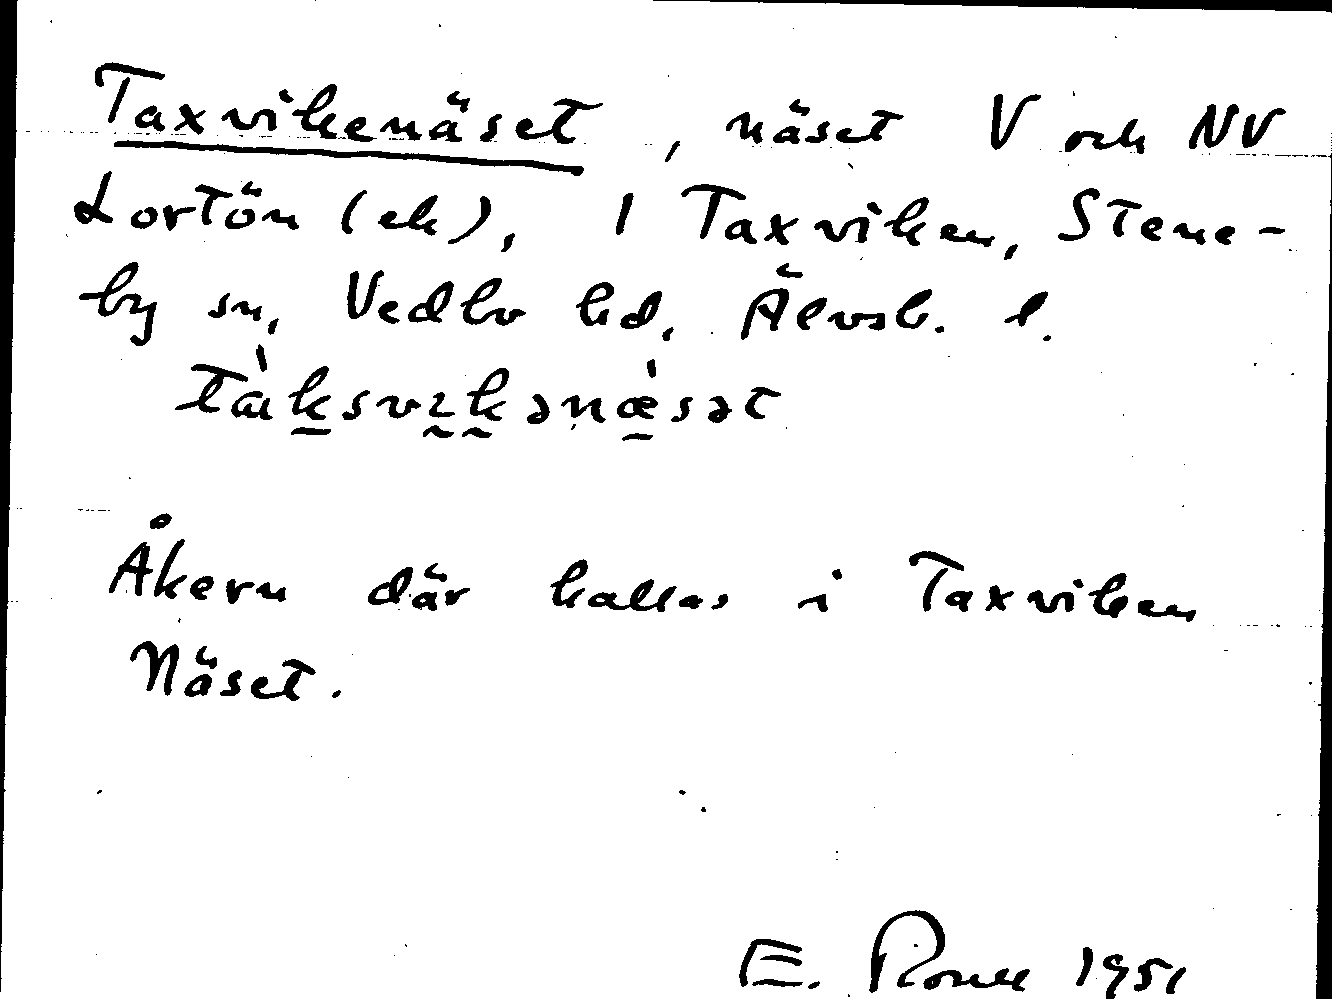 Taxvikenäset, näset V och NV
Lortön (ek), 1 Taxviken, Stene-
by sn, Vedbo hd, Älvsb. l.
tàksvikənæ̀sət
Åkern där kallas i Taxviken
Näset.
E. 1951